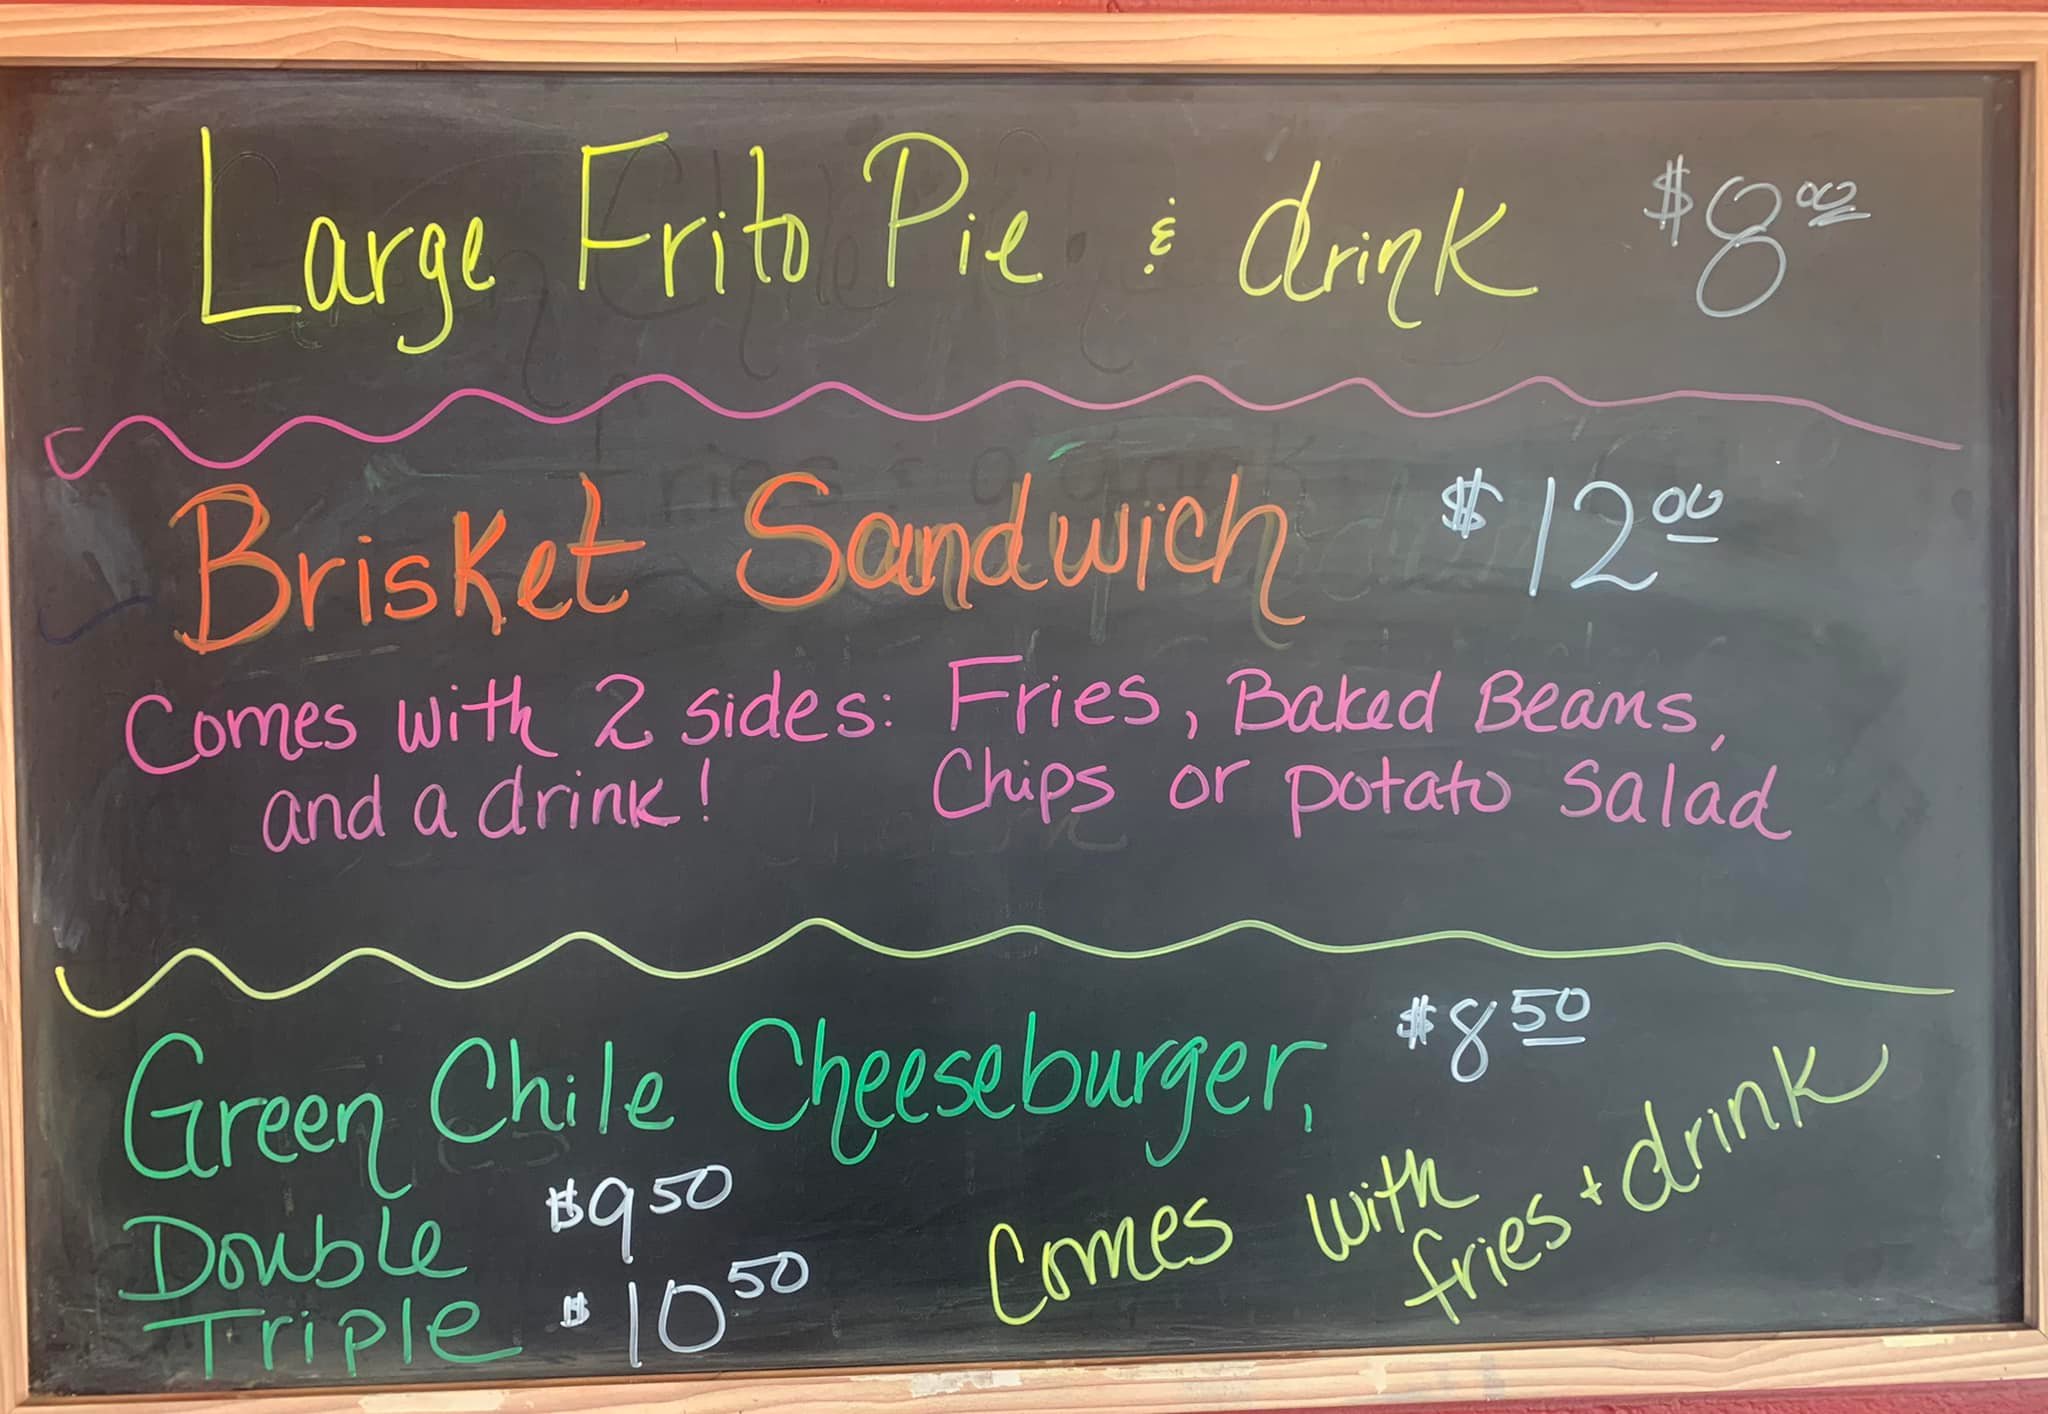 Large Frito Pie & drink $8.00
Brisket Sandwich $12.00
Comes with 2 sides: Fries, Baked Beans,
and a drink! Chips or potato salad
Green Chile Cheeseburger, $8.50
Double $9.50
Triple $10.50
Comes with
fries + drink